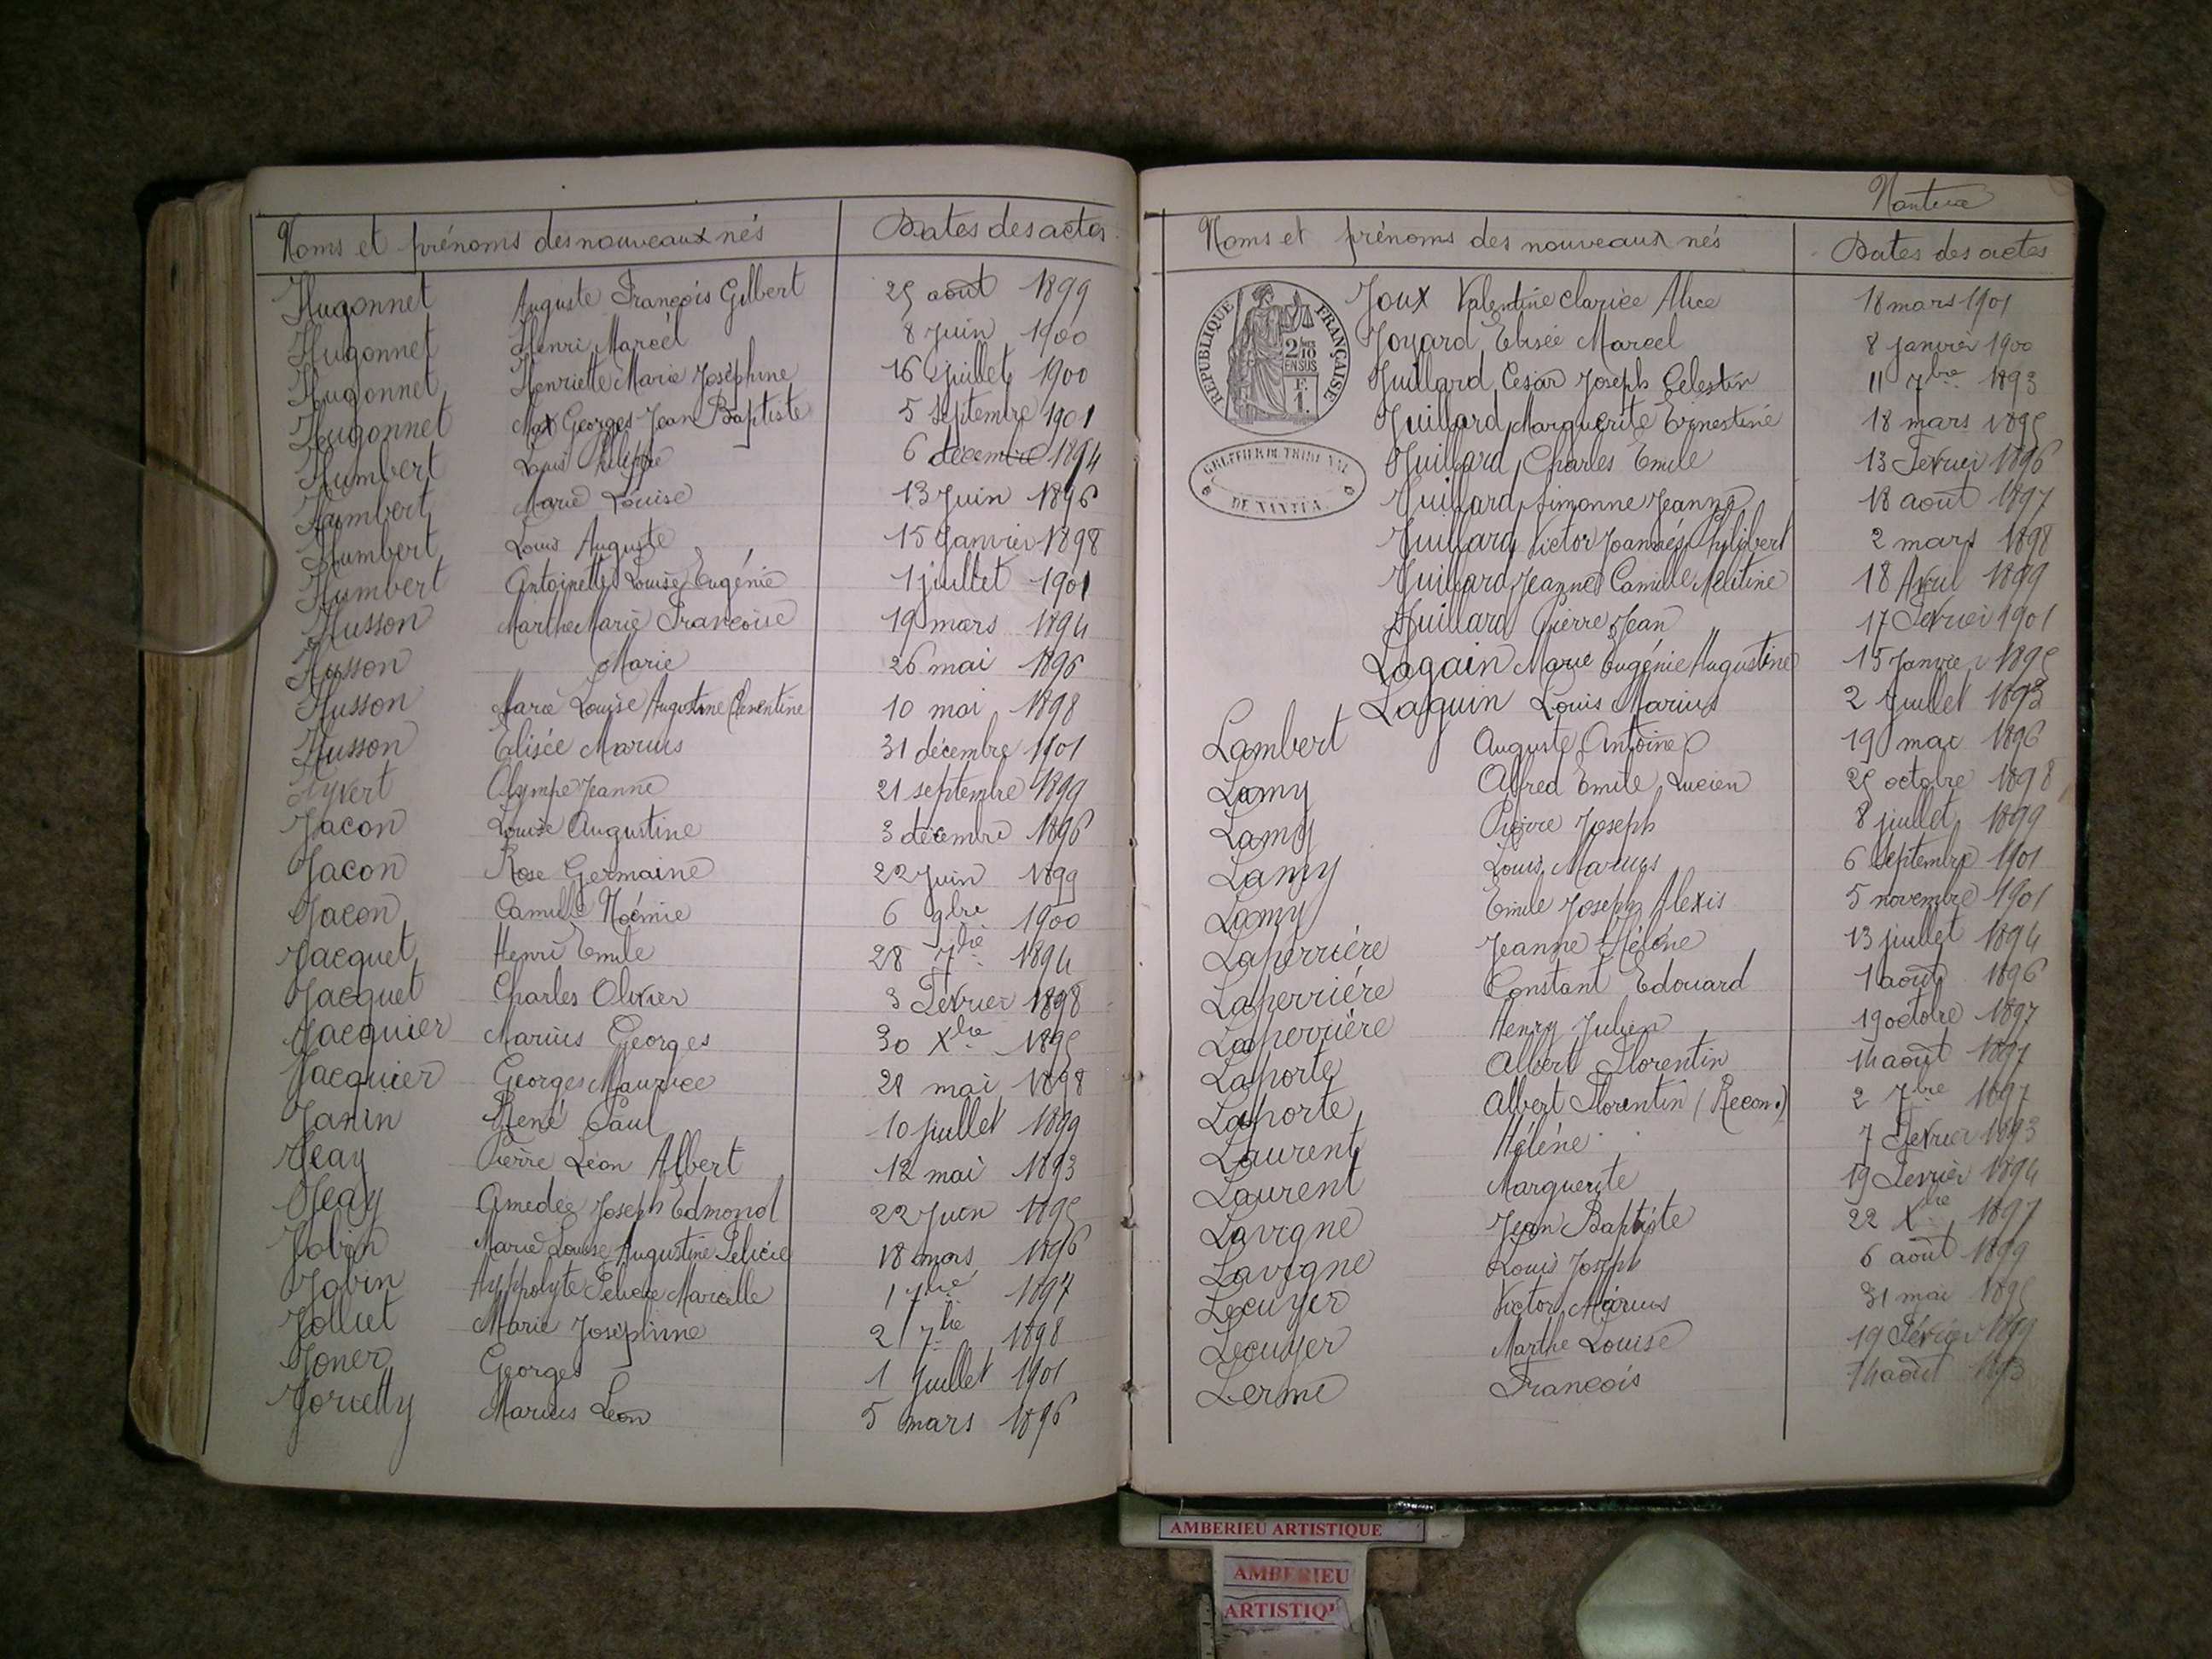 Noms et prénoms des nouveaux nés Dates des actes
Hugonnet Auguste François Gilbert 25 août 1899
Hugonnet Henri Marcel 8 Juin 1900
Hugonnet Henriette Marie Joséphine 16 juillet 1900
Hugonnet Max Georges Jean Baptiste 5 septembre 1901
Humbert Louis Philippe 6 décembre 1894
Humbert Marie Louise 13 Juin 1896
Humbert Louis Auguste 15 Janvier 1898
Humbert Antoinette Louise Eugénie 1 juillet 1901
Husson Marthe Marie Françoise 19 mars 1894
Husson Marie 26 mai 1896
Husson Marie Louise Augustine Clémentine 10 mai 1898
Husson Elisée Marius 31 décembre 1901
Hyvert Olympe Jeanne 21 septembre 1899
Jacon Louise Augustine 3 décembre 1896
Jacon Rose Germaine 22 Juin 1899
Jacon Camille Noémie 6 9bre 1900
Jacquet Henri Emile 28 7bre 1894
Jacquet Charles Olivier 3 Février 1898
Jacquier Marius Georges 30 Xbre 1895
Jacquier Georges Maurice 21 mai 1898
Janin René Paul 10 juillet 1899
Jeay Pierre Léon Albert 12 mai 1893
Jeay Amedée Joseph Edmond 22 Juin 1895
Jobin Marie Louise Augustine Félicie 18 mars 1896
Jobin Hyppolyte Félicie Marcelle 1 7bre 1897
Jolliet Marie Joséphine 21 7bre 1898
Joner Georges 1 Juillet 1901
Marius Léon 5 mars 1896
Nantua
Noms et prénoms des nouveaux nés Dates des actes
REPUBLIQUE FRANÇAISE
2/10 EN SUS
F. 1.
GREFFIER DU TRIBUNAL DE NANTUA
Joux Valentine Clarice Alice 18 mars 1901
Joyard Elisée Marcel 8 janvier 1900
Juillard César Joseph Celestin 11 7bre 1893
Juillard Marguerite Ernestine 18 mars 1895
Juillard Charles Emile 13 Fevrier 1896
Juillard Simonne Jeanne 18 août 1897
Juillard Victor Joannés Philibert 2 mars 1898
Juillard Jeanne Camille Melitine 18 Avril 1899
Juillard Pierre Jean 17 Fevrier 1901
Lagain Marie Eugénie Augustine 15 Janvier 1895
Laguin Louis Marius 2 Juillet 1893
Lambert Auguste Antoine 19 mai 1896
Lamy Alfred Emile Lucien 25 octobre 1898
Lamy Pierre Joseph 8 juillet 1899
Lamy Louis Marius 6 Septembre 1901
Lamy Emile Joseph Alexis 5 novembre 1901
Laperriére Jeanne Héléne 13 juillet 1894
Laperriére Constant Edouard 1 août 1896
Laperriére Henry Julien 19 octobre 1897
Laporte Albert Florentin 14 août 1897
Laporte Albert Florentin (Recon.) 2 7bre 1897
Laurent Héléne 7 Fevrier 1893
Laurent Marguerite 19 Fevrier 1894
Lavigne Jean Baptiste 22 Xbre 1897
Lavigne Louis Joseph 6 août 1899
Lecuyer Victor Marius 31 mai 1895
Lecuyer Marthe Louise 19 Février 1899
Lerme François 14 août 1893
AMBERIEU ARTISTIQUE
AMBERIEU
ARTISTIQU